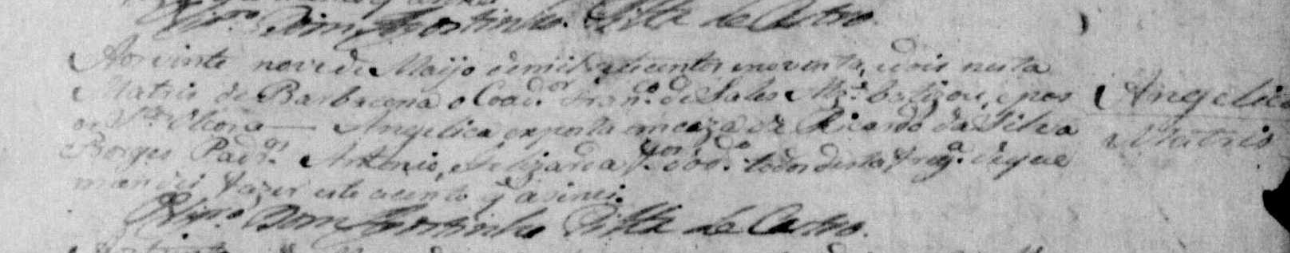 Vigr.o Dom Agostinho Pitta de Castro.
Aos vinte nove de Maijo de mil setecentos e noventa, e dois nesta
Matris de Barbacena o Coad.or Fran.co de Sales batizou, e pos
os S.tos Oleos a Angelica exposta em caza de Ricardo da Silva
Borges Padr.os Antonio, Felizarda todos desta Freg.a de que
mandei fazer este acento q asinei.
Vigr.o Dom Agostinho Pitta de Castro.
Angelica
Matris